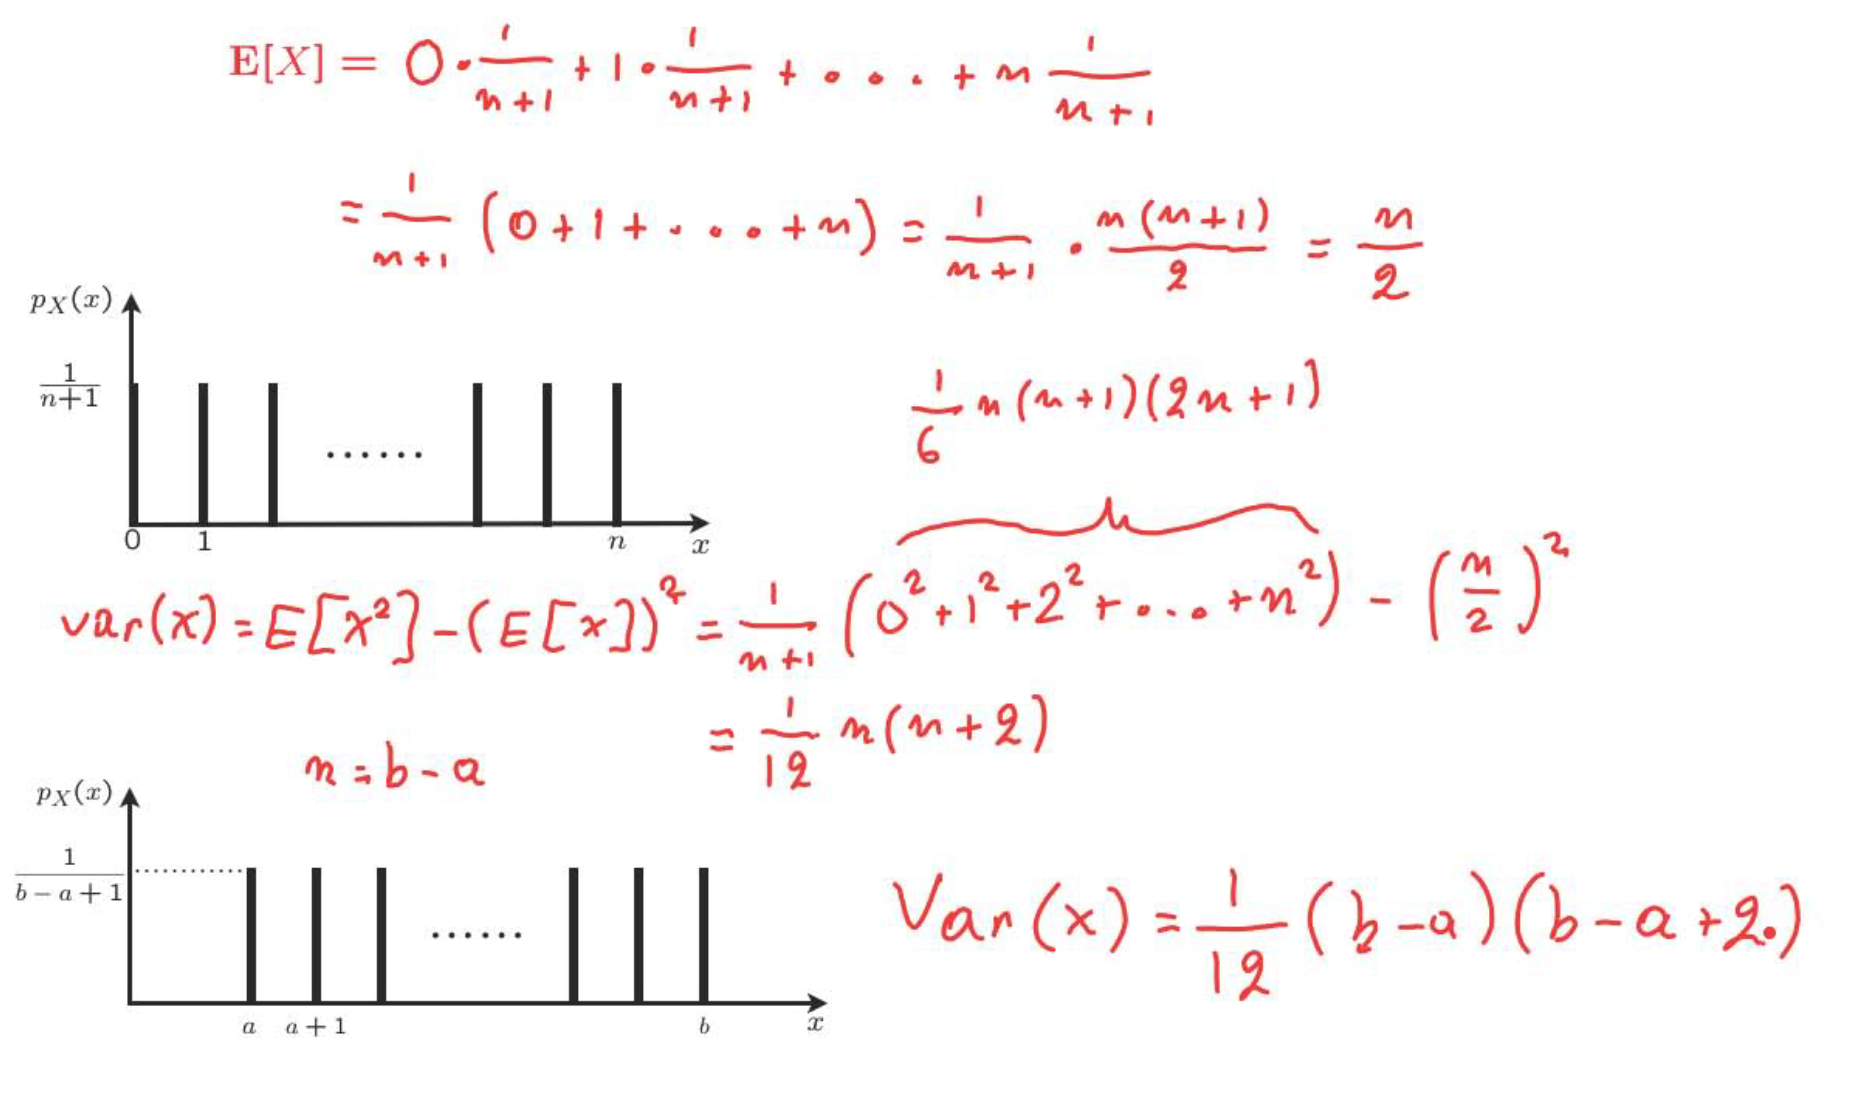 E[X] = 0 · 1/(n+1) + 1 · 1/(n+1) + . . . + n 1/(n+1)
= 1/(n+1) (0 + 1 + . . . + n) = 1/(n+1) · n(n+1)/2 = n/2
p_X(x)
1/(n+1)
......
0 1 n x
1/6 n(n+1)(2n+1)
var(x) = E[X²] - (E[x])² = 1/(n+1) (0² + 1² + 2² + ... + n²) - (n/2)²
= 1/12 n(n+2)
n = b - a
p_X(x)
1/(b - a + 1)
......
a a + 1 b x
Var(x) = 1/12 (b-a)(b-a+2.)